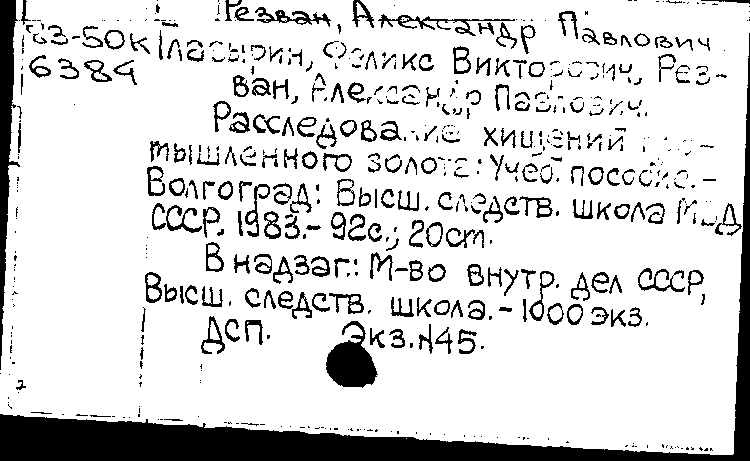 Резван, Александр Павлович
83-50к Гласырин, Феликс Викторович, Рез-
6384 ван, Александр Павлович.
Расследование хищений про-
мышленного золота: Учеб. пособие. -
Волгоград: Высш. следств. школа МВД
СССР, 1983.- 92с.; 20см.
В надзаг.: М-во внутр. дел СССР,
Высш. следств. школа. - 1000 экз.
ДСП. Экз. N45.